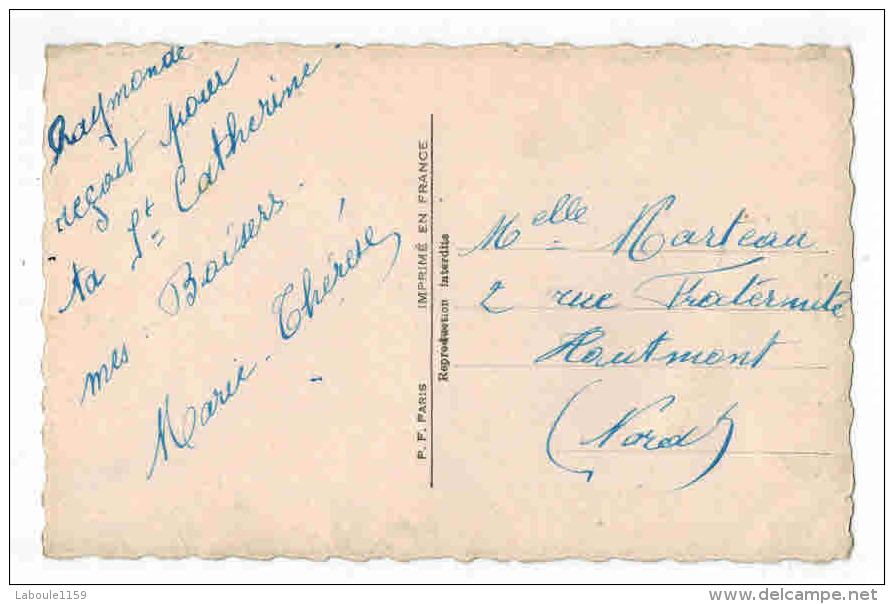 Raymonde
reçoit pour
ta St Catherine
mes Baisers.
Marie-Thérèse
P. F. PARIS IMPRIMÉ EN FRANCE
Reproduction interdite
Melle Marteau
2 rue Fraternité
Hautmont
(Nord)
Laboule1159
www.delcampe.net